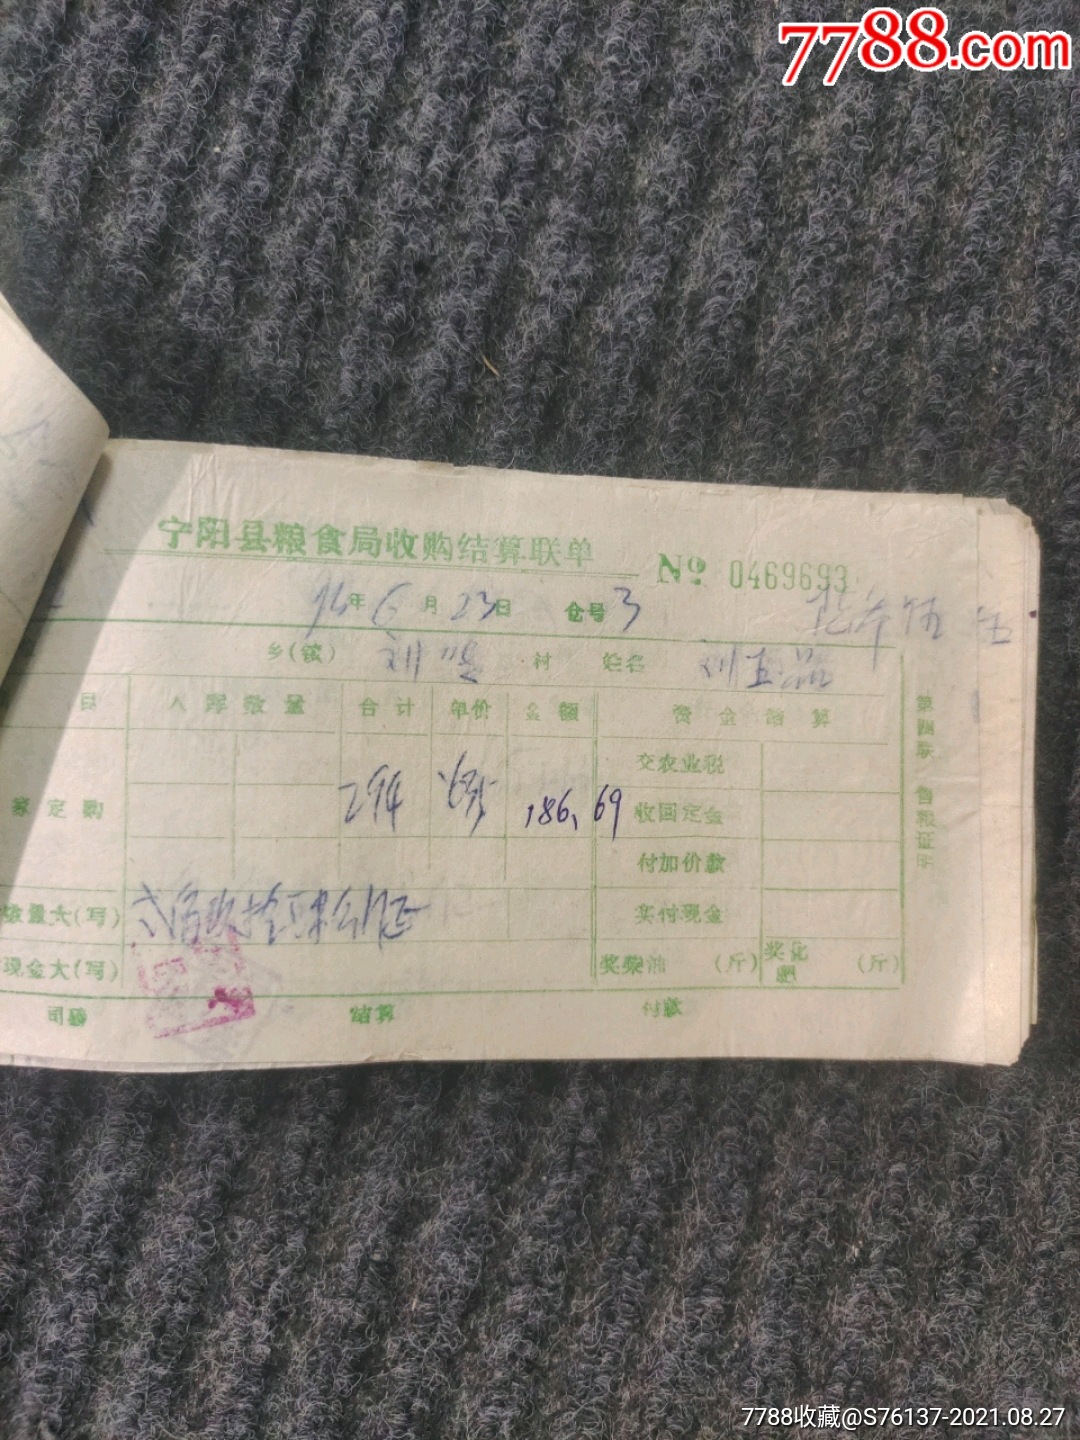 7788.com
宁阳县粮食局收购结算联单 No 0469693
94年6月23日 仓号3
乡(镇) 村 姓名 刘玉品
目 入库数量 合计 单价 金额 资金结算
家定购 294 186.69
交农业税
收回定金
付加价款
数量大(写) 贰佰玖拾肆公斤正 实付现金
现金大(写) 奖柴油 (斤) 奖化肥 (斤)
司磅 结算 付款
第四联 售粮证明
7788收藏@S76137-2021.08.27